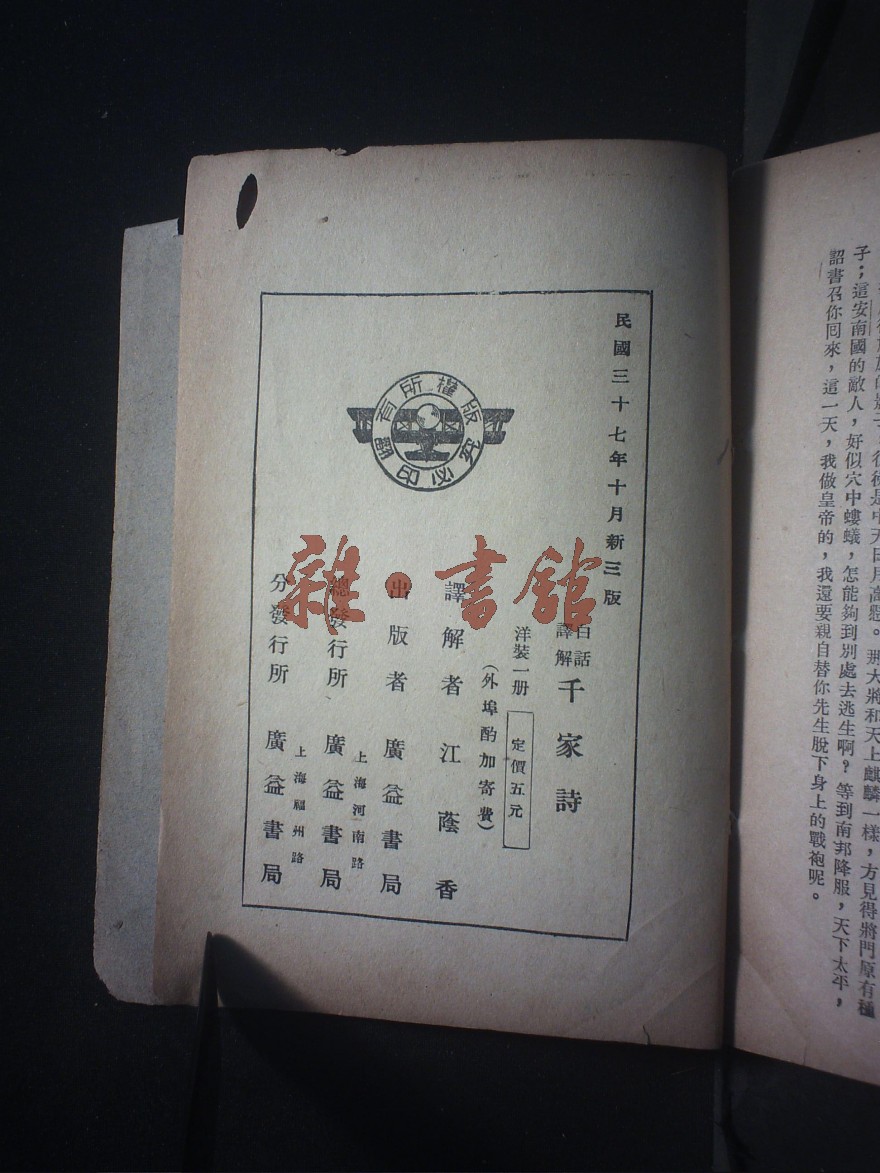 子；這安南國的敵人，好似穴中螻蟻，怎能夠到別處去逃生啊？等到南邦降服，天下太平，
詔書召你回來，這一天，我做皇帝的，我還要親自替你先生脫下身上的戰袍呢。
民國三十七年十月新三版
白話
譯解
千家詩
洋裝一册
定價五元
（外埠酌加寄費）
譯解者 江蔭香
出版者 廣益書局
上海河南路
總發行所 廣益書局
上海福州路
分發行所 廣益書局
版權所有
翻印必究
雜·書館